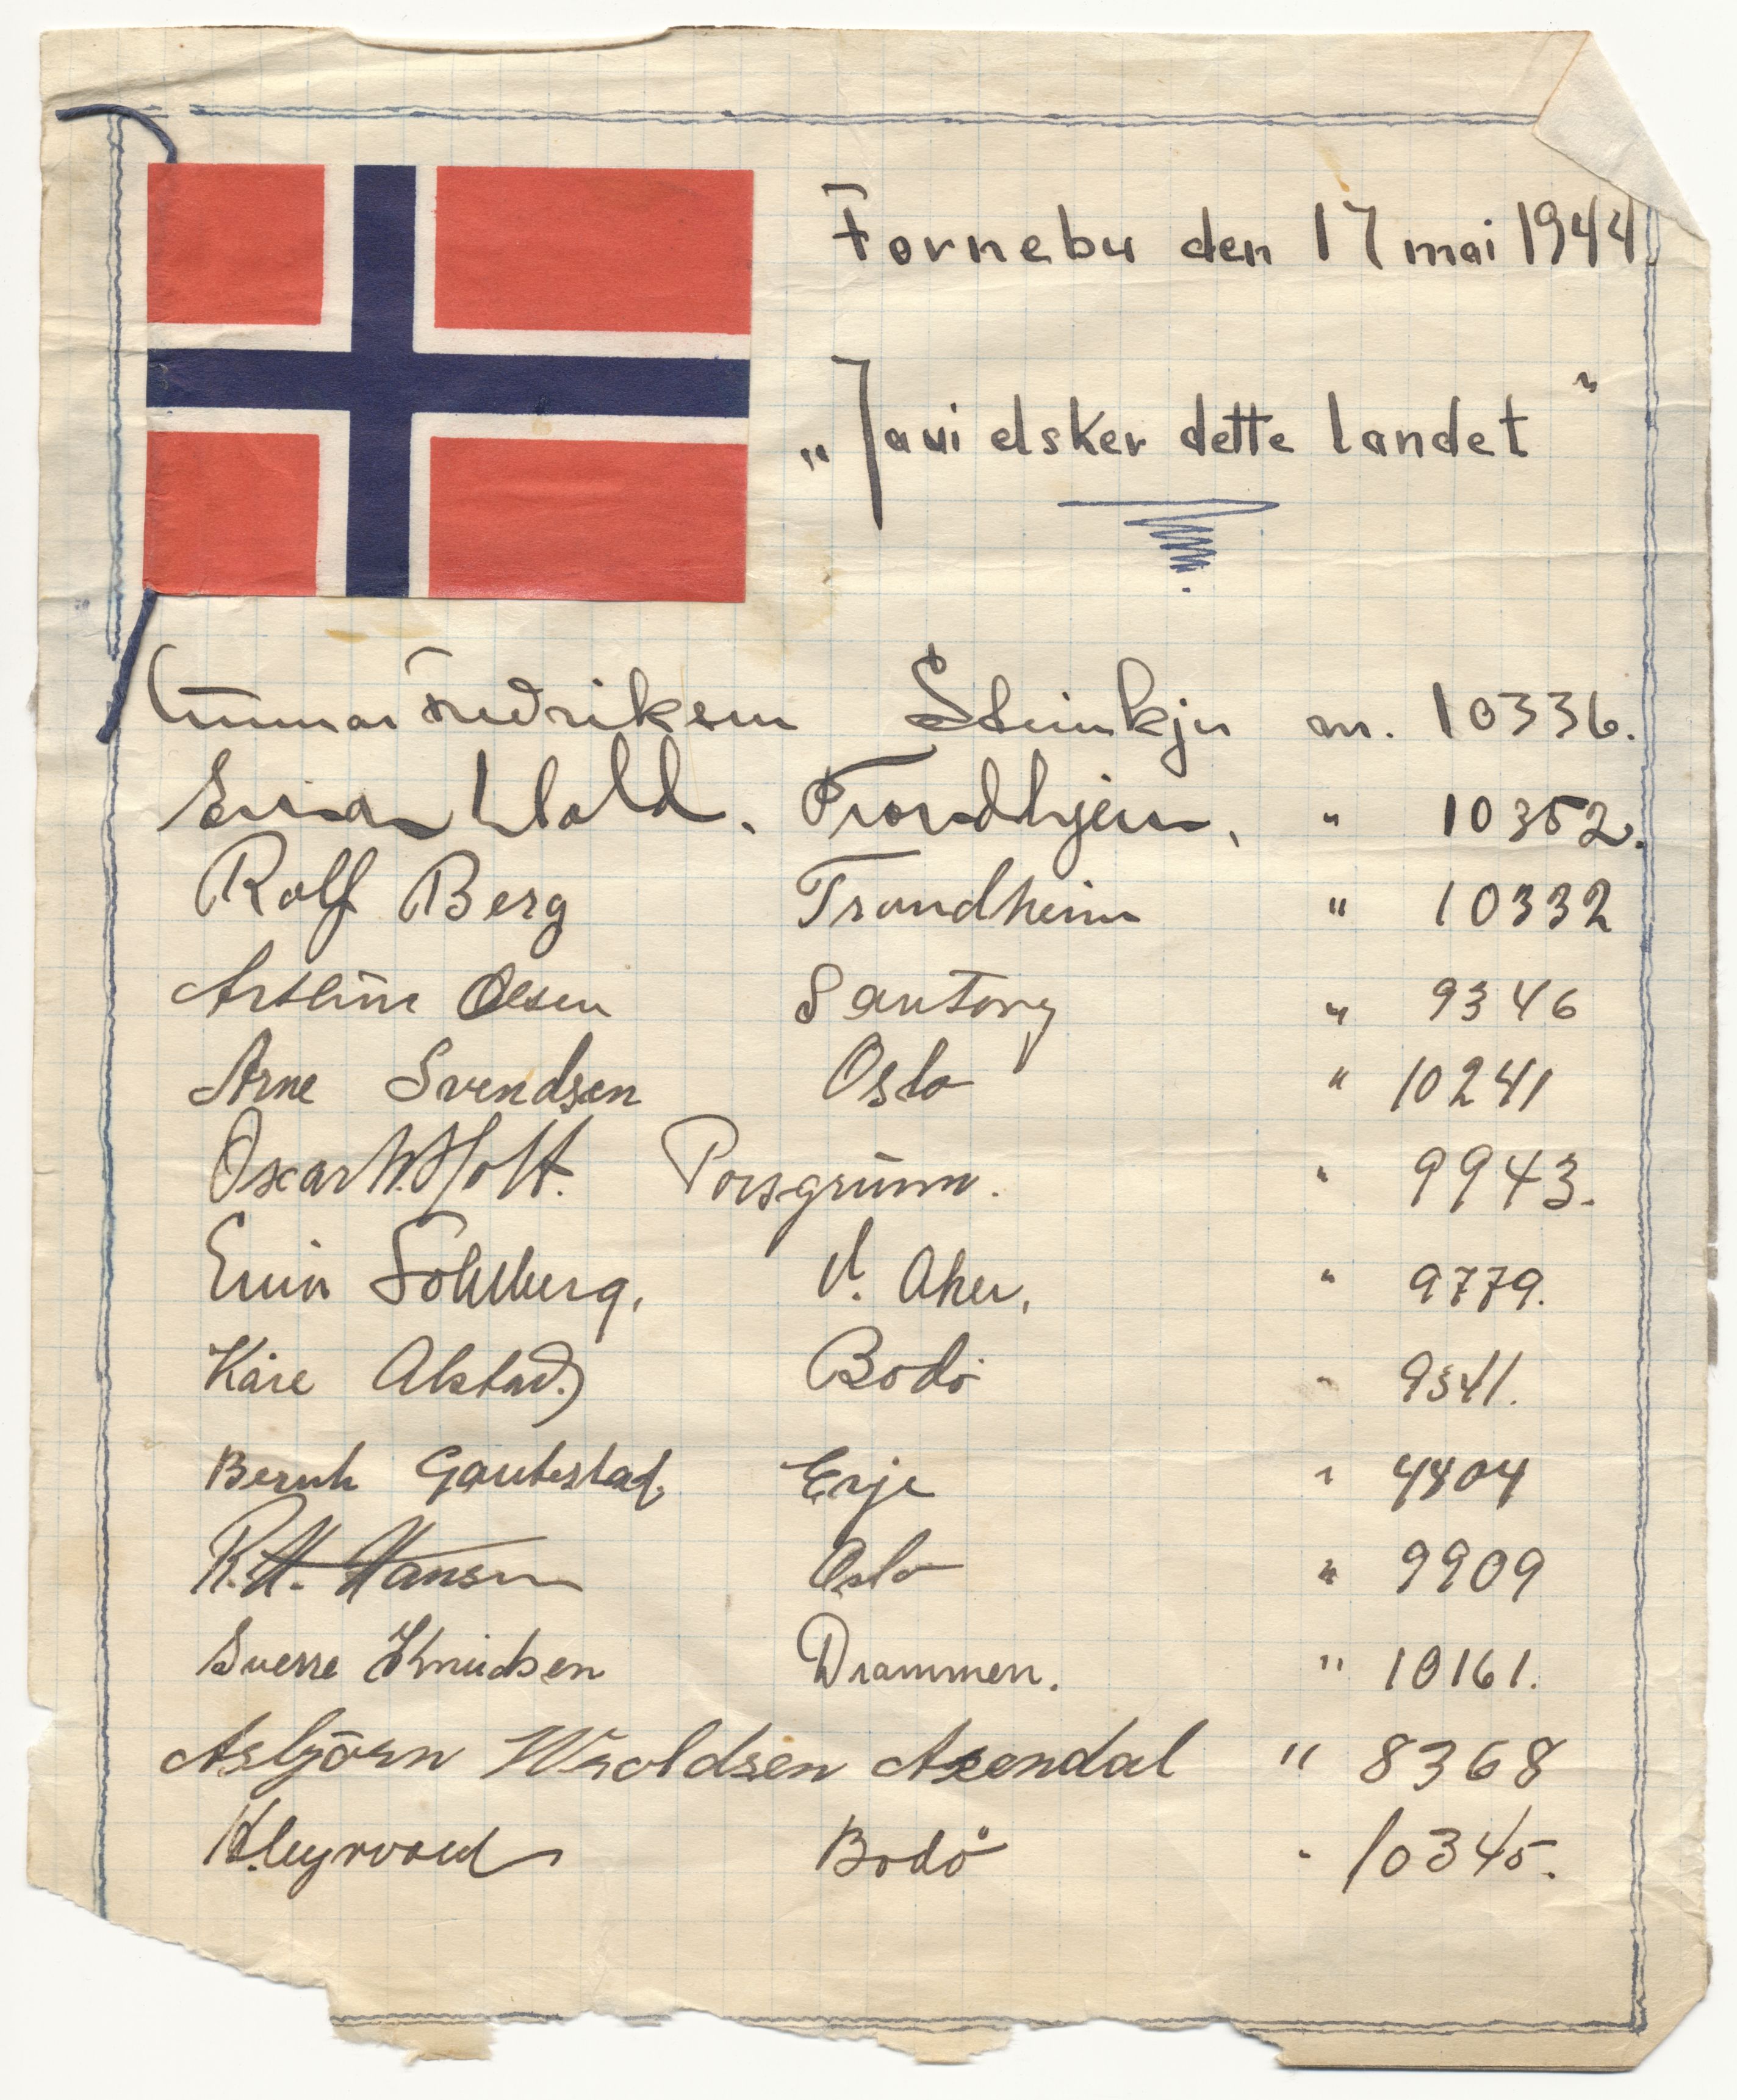 Fornebu den 17 mai 1944.
„Ja vi elsker dette landet"
Gunnar Fredriksen Steinkjer nr. 10336.
Einar Wold. Trondhjem, " 10352.
Rolf Berg Trondheim " 10332
Arthur Olsen " 9346
Arne Svendsen Oslo " 10241
Oscar W. Holt. Porsgrunn. " 9943.
Sohlberg, V. Aker, " 9779.
Kåre Alstad. Bodö " 9341.
Bernh Gautestad, Evje " 4404
R.H. Hansen Oslo " 9909
Sverre Knudsen Drammen. " 10161.
Asbjörn Wroldsen Arendal " 8368
Bodö " 10345.